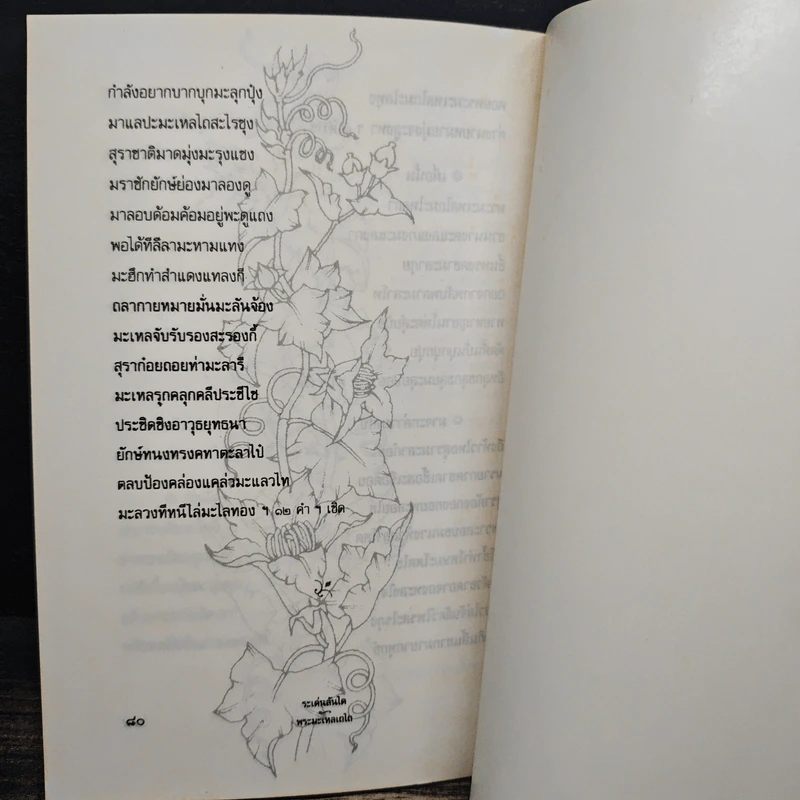 กำลังอยากบากบุกมะลุกปุ๋ง
มาแลปะมะเหลไถสะไรซุง
สุราชาติมาดมุ่งมะรุงแชง
มราชักยักษ์ย่องมาลองดู
มาลอบด้อมค้อมอยู่พะตูแถง
พอได้ทีลีลามะหามแทง
มะฮึกทำสำแดงแทลงกี
ถลากายหมายมั่นมะลันจ้อง
มะเหลจับรับรองสะรองกี้
สุราก๋อยถอยท่ามะลารี
มะเหลรุกคลุกคลีประชีไซ
ประชิดชิงอาวุธยุทธนา
ยักษ์ทนงทรงคทาตะลาไป๋
ตลบป้องคล่องแคล่วมะแลวไท
มะลวงทีหนีไล่มะไลทอง ฯ ๑๒ คำ ฯ เชิด
ระเด่นลันได
พระมะเหลเถไถ
๘๐